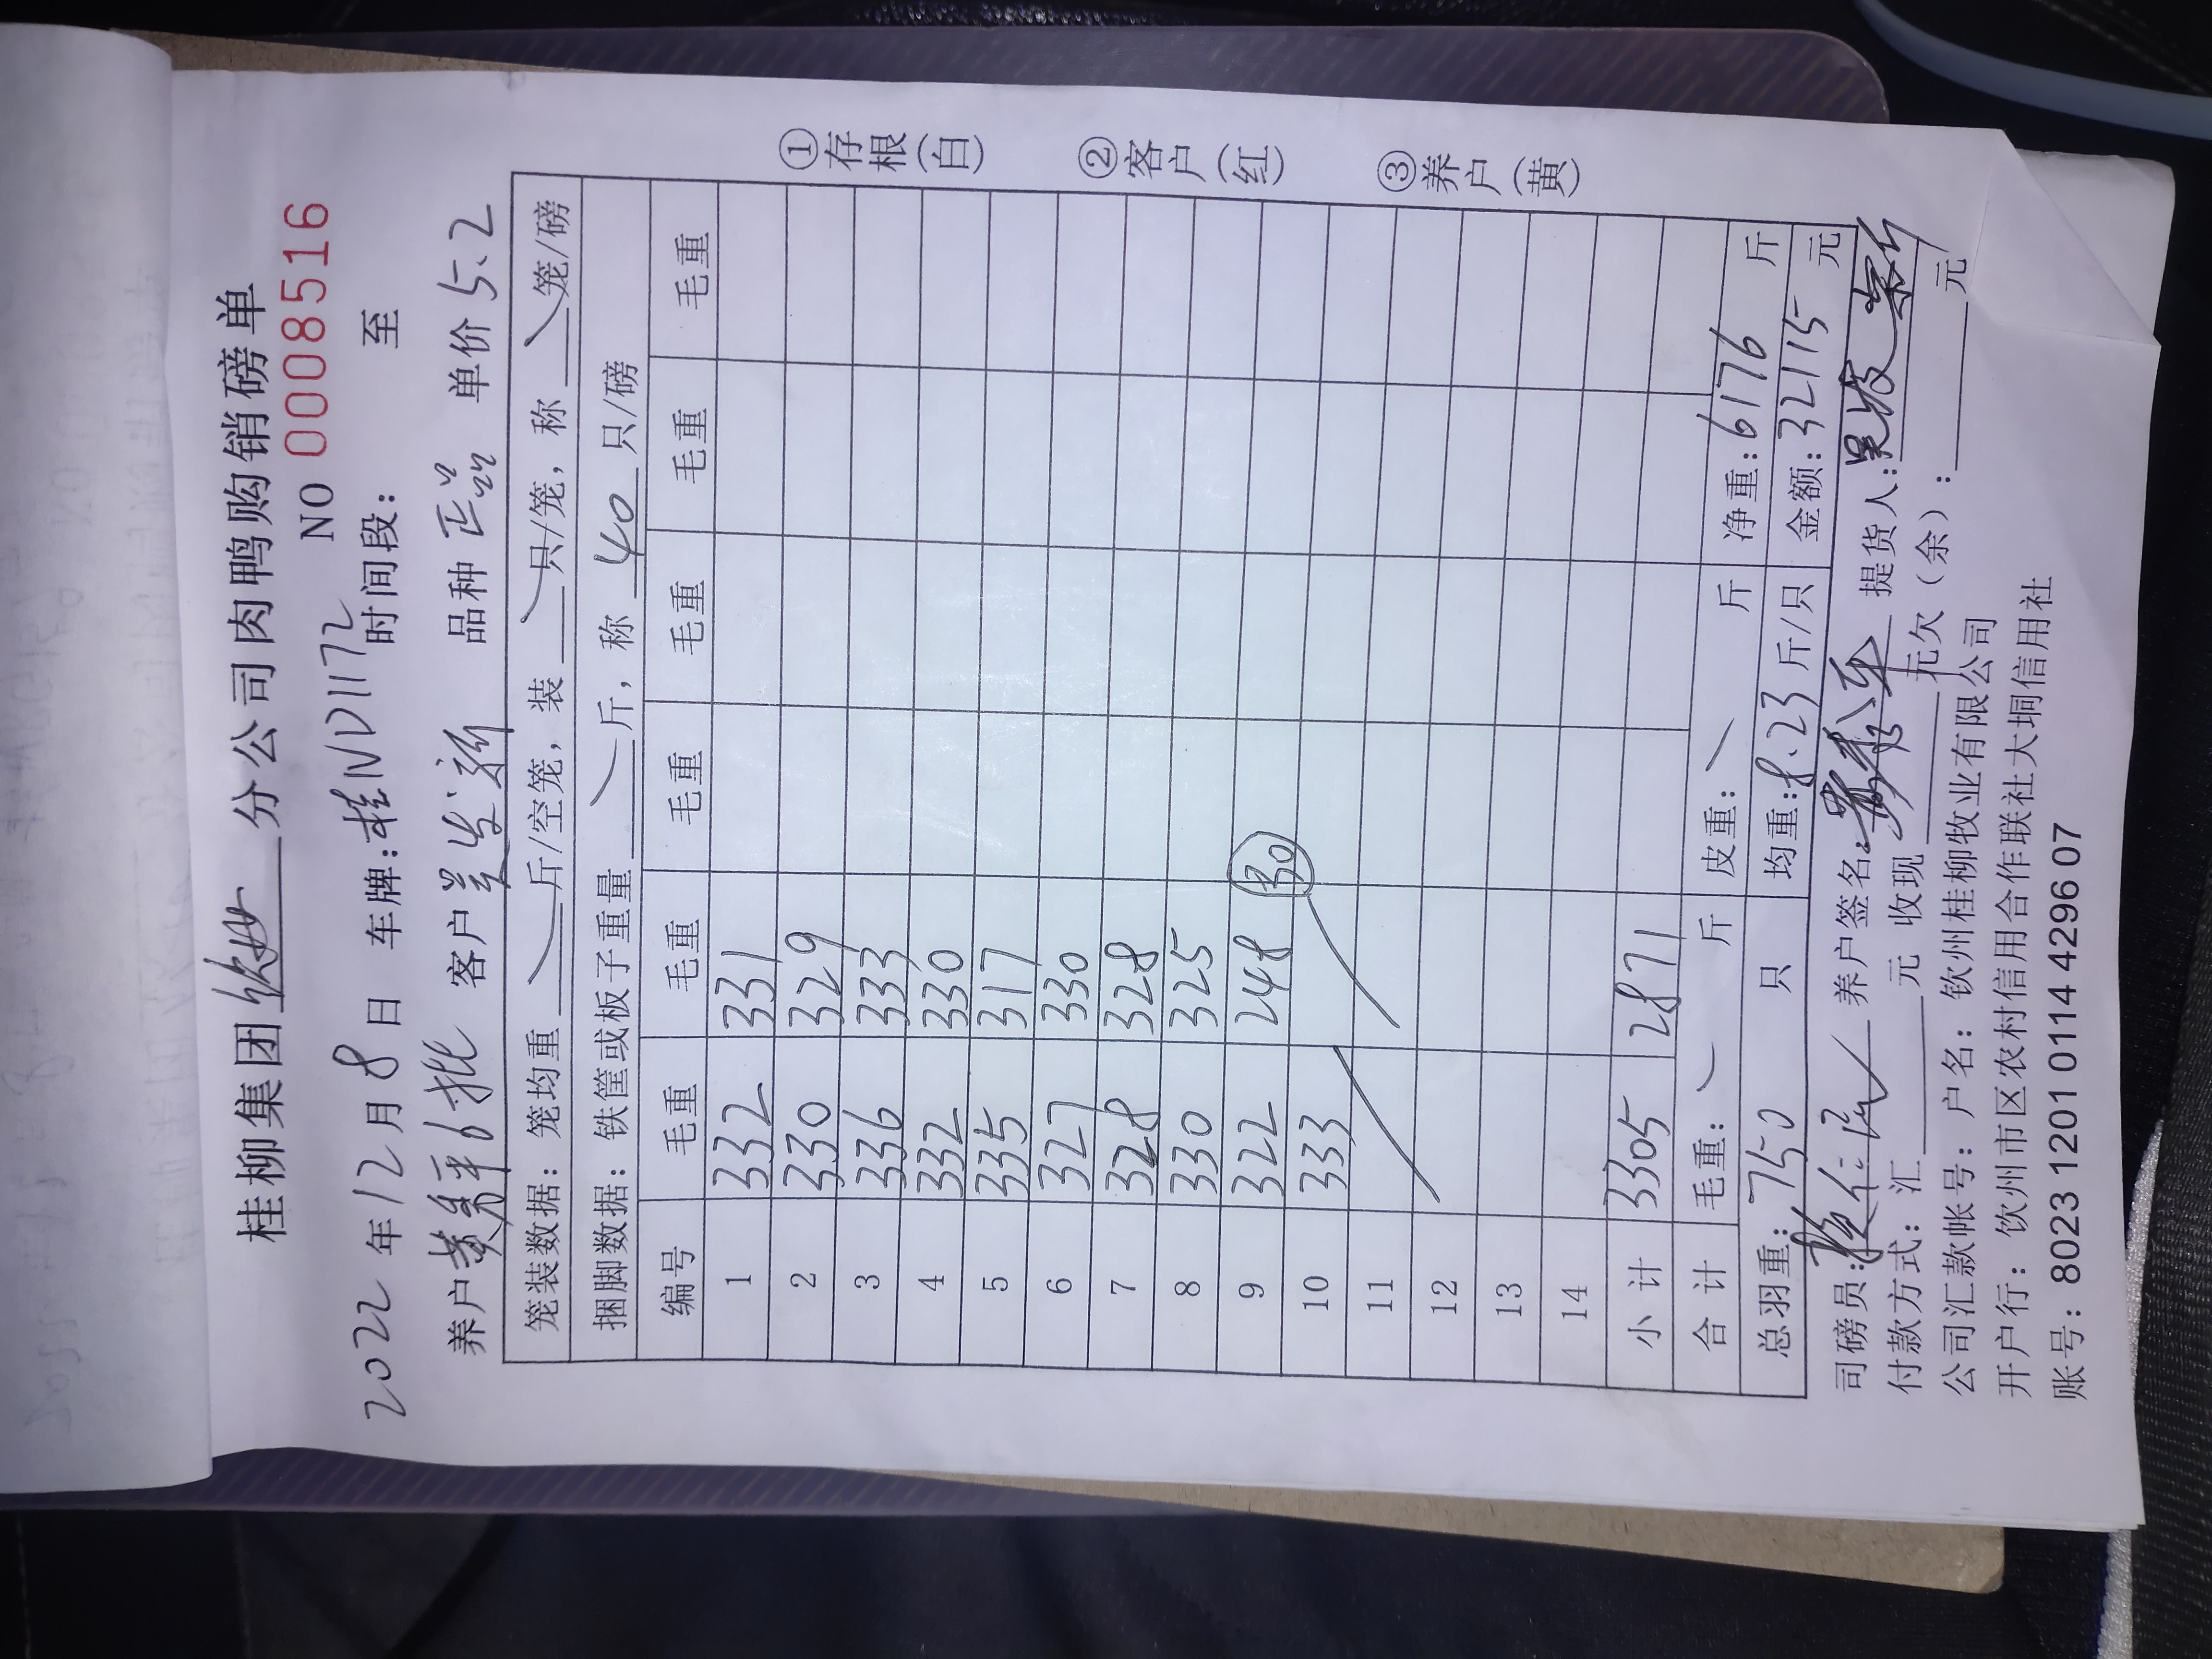 桂柳集团钦州分公司肉鸭购销磅单
NO 0008516
2022年12月8日 车牌:桂ND1172 时间段: 至
养户黄秀平6批 客户吴发新 品种正品 单价5.2
笼装数据:笼均重 斤/空笼,装 只/笼,称 笼/磅
捆脚数据:铁筐或板子重量 斤,称 40 只/磅
编号 毛重 毛重 毛重 毛重 毛重 毛重
1 332 331
2 330 329
3 336 333
4 332 330
5 335 317
6 327 330
7 328 328
8 330 325
9 322 248 30
10 333
11
12
13
14
小计 3305 2871
合计 毛重: 斤 皮重: 斤 净重:6176 斤
总羽重:750 只 均重:8.23斤/只 金额:32115 元
司磅员: 养户签名: 提货人:
付款方式:汇 元 收现 元欠(余): 元
公司汇款帐号:户名:钦州桂柳牧业有限公司
开户行:饮州市区农村信用合作联社大垌信用社
账号:8023 1201 0114 4296 07
①存根(白)
②客户(红)
③养户(黄)